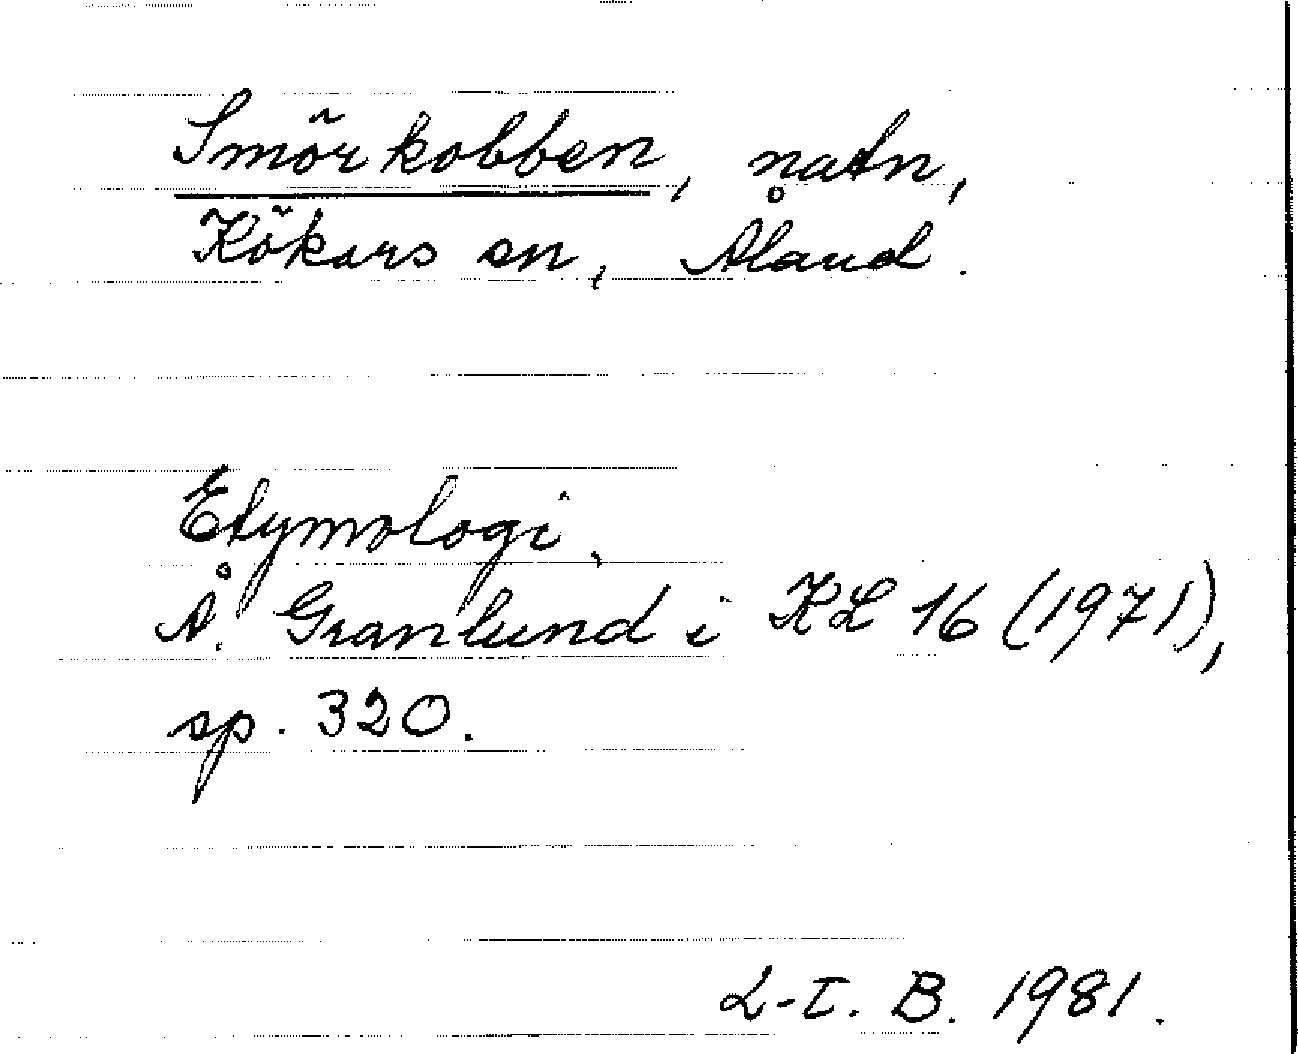 Smörkobben, natn,
Kökars sn, Åland.
Etymologi.
Å. Granlund i KL 16 (1971),
sp. 320.
L-I. B. 1981.